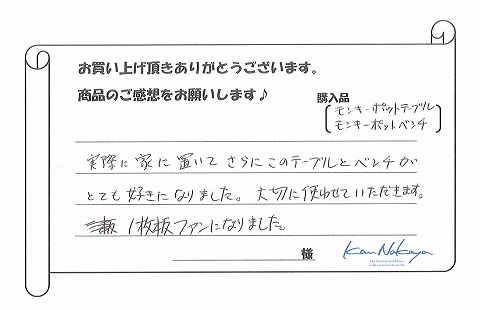 お買い上げ頂きありがとうございます。
商品のご感想をお願いします♪
購入品
モンキーポットテーブル
モンキーポットベンチ
実際に家に置いてさらにこのテーブルとベンチが
とても好きになりました。大切に使わせていただきます。
1枚板ファンになりました。
様
KanNakaya